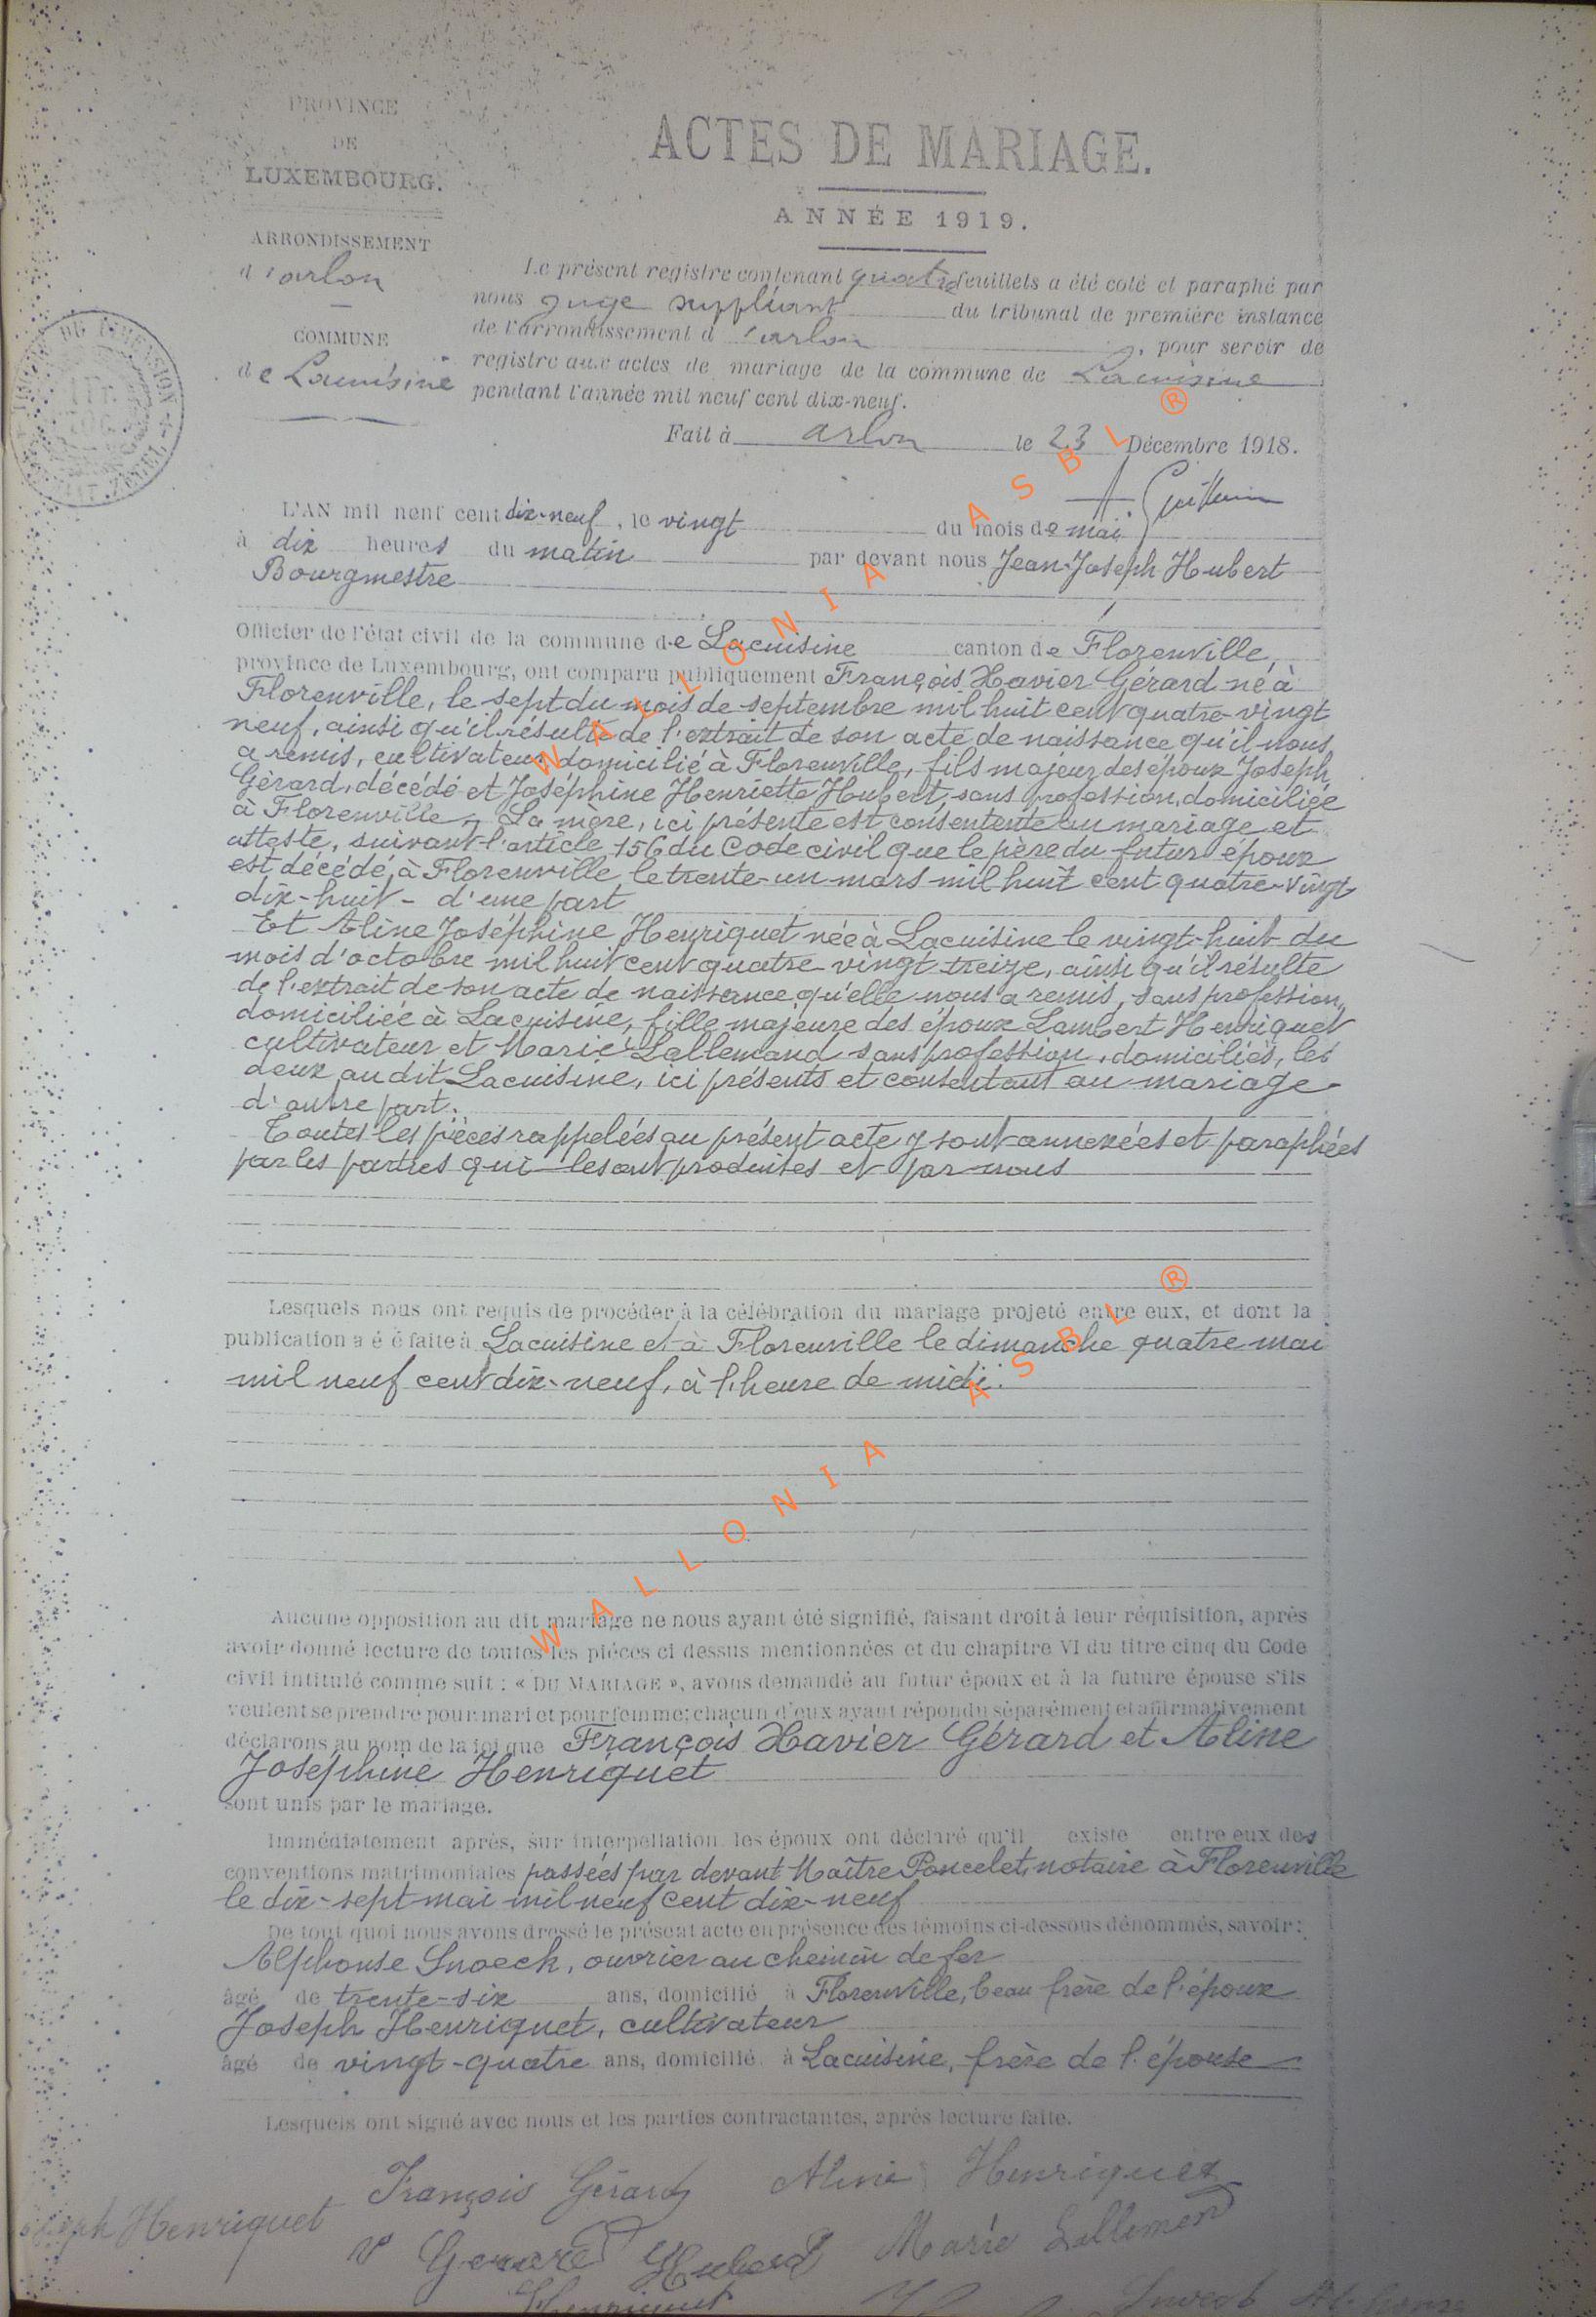 PROVINCE
DE
LUXEMBOURG.
ARRONDISSEMENT
d'arlon
COMMUNE
de Lacuisine
ACTES DE MARIAGE.
ANNÉE 1919.
Le présent registre contenant quatre feuillets a été coté et paraphé par
nous juge suppléant du tribunal de première instance
de l'arrondissement d'arlon, pour servir de
registre aux actes de mariage de la commune de Lacuisine
pendant l'année mil neuf cent dix-neuf.
Fait à arlon le 23 Décembre 1918.
L'AN mil neuf cent dix-neuf, le vingt du mois de mai
à dix heures du matin par devant nous Jean-Joseph Hubert
Bourgmestre
Officier de l'état civil de la commune de Lacuisine canton de Florenville,
province de Luxembourg, ont comparu publiquement François Xavier Gérard né à
Florenville, le sept du mois de septembre mil huit cent quatre-vingt
neuf, ainsi qu'il résulte de l'extrait de son acte de naissance qu'il nous
a remis, cultivateur domicilié à Florenville, fils majeur des époux Joseph
Gérard, décédé et Joséphine Henriette Hubert, sans profession, domiciliée
à Florenville, La mère, ici présente est consentente au mariage et
atteste, suivant l'article 156 du Code civil que le père du futur époux
est décédé, à Florenville le trente-un mars mil huit cent quatre-vingt
dix-huit - d'une part
Et Aline Joséphine Henriquet née à Lacuisine le vingt-huit du
mois d'octobre mil huit cent quatre-vingt treize, ainsi qu'il résulte
de l'extrait de son acte de naissance qu'elle nous a remis, sans profession,
domiciliée à Lacuisine, fille majeure des époux Lambert Henriquet
cultivateur et Marie Lallemand sans profession, domiciliés, les
deux audit Lacuisine, ici présents et consentant au mariage
d'autre part.
Toutes les pièces rappelées au présent acte y sont annexées et paraphées
par les parties qui les ont produites et par nous
Lesquels nous ont requis de procéder à la célébration du mariage projeté entre eux, et dont la
publication a é é faite à Lacuisine et à Florenville le dimanche quatre mai
mil neuf cent dix-neuf, à l'heure de midi.
Aucune opposition au dit mariage ne nous ayant été signifié, faisant droit à leur réquisition, après
avoir donné lecture de toutes les pièces ci dessus mentionnées et du chapitre VI du titre cinq du Code
civil intitulé comme suit : « DU MARIAGE », avons demandé au futur époux et à la future épouse s'ils
veulent se prendre pour mari et pour femme; chacun d'eux ayant répondu séparément et affirmativement
déclarons au nom de la loi que François Xavier Gérard et Aline
Joséphine Henriquet
sont unis par le mariage.
Immédiatement après, sur interpellation les époux ont déclaré qu'il existe entre eux des
conventions matrimoniales passées par devant Maître Poncelet, notaire à Florenville
le dix-sept mai mil neuf cent dix-neuf
De tout quoi nous avons dressé le présent acte en présence des témoins ci-dessous dénommés, savoir :
Alphonse Snoeck, ouvrier au chemin de fer
âgé de trente-six ans, domicilié à Florenville, beau frère de l'époux
Joseph Henriquet, cultivateur
âgé de vingt-quatre ans, domicilié à Lacuisine, frère de l'épouse
Lesquels ont signé avec nous et les parties contractantes, après lecture faite.
François Gérard Aline Henriquet
Henriquet
Gerard Hubert Marie Lallemend
Henriquet
WALLONIA ASBL ®
WALLONIA ASBL ®